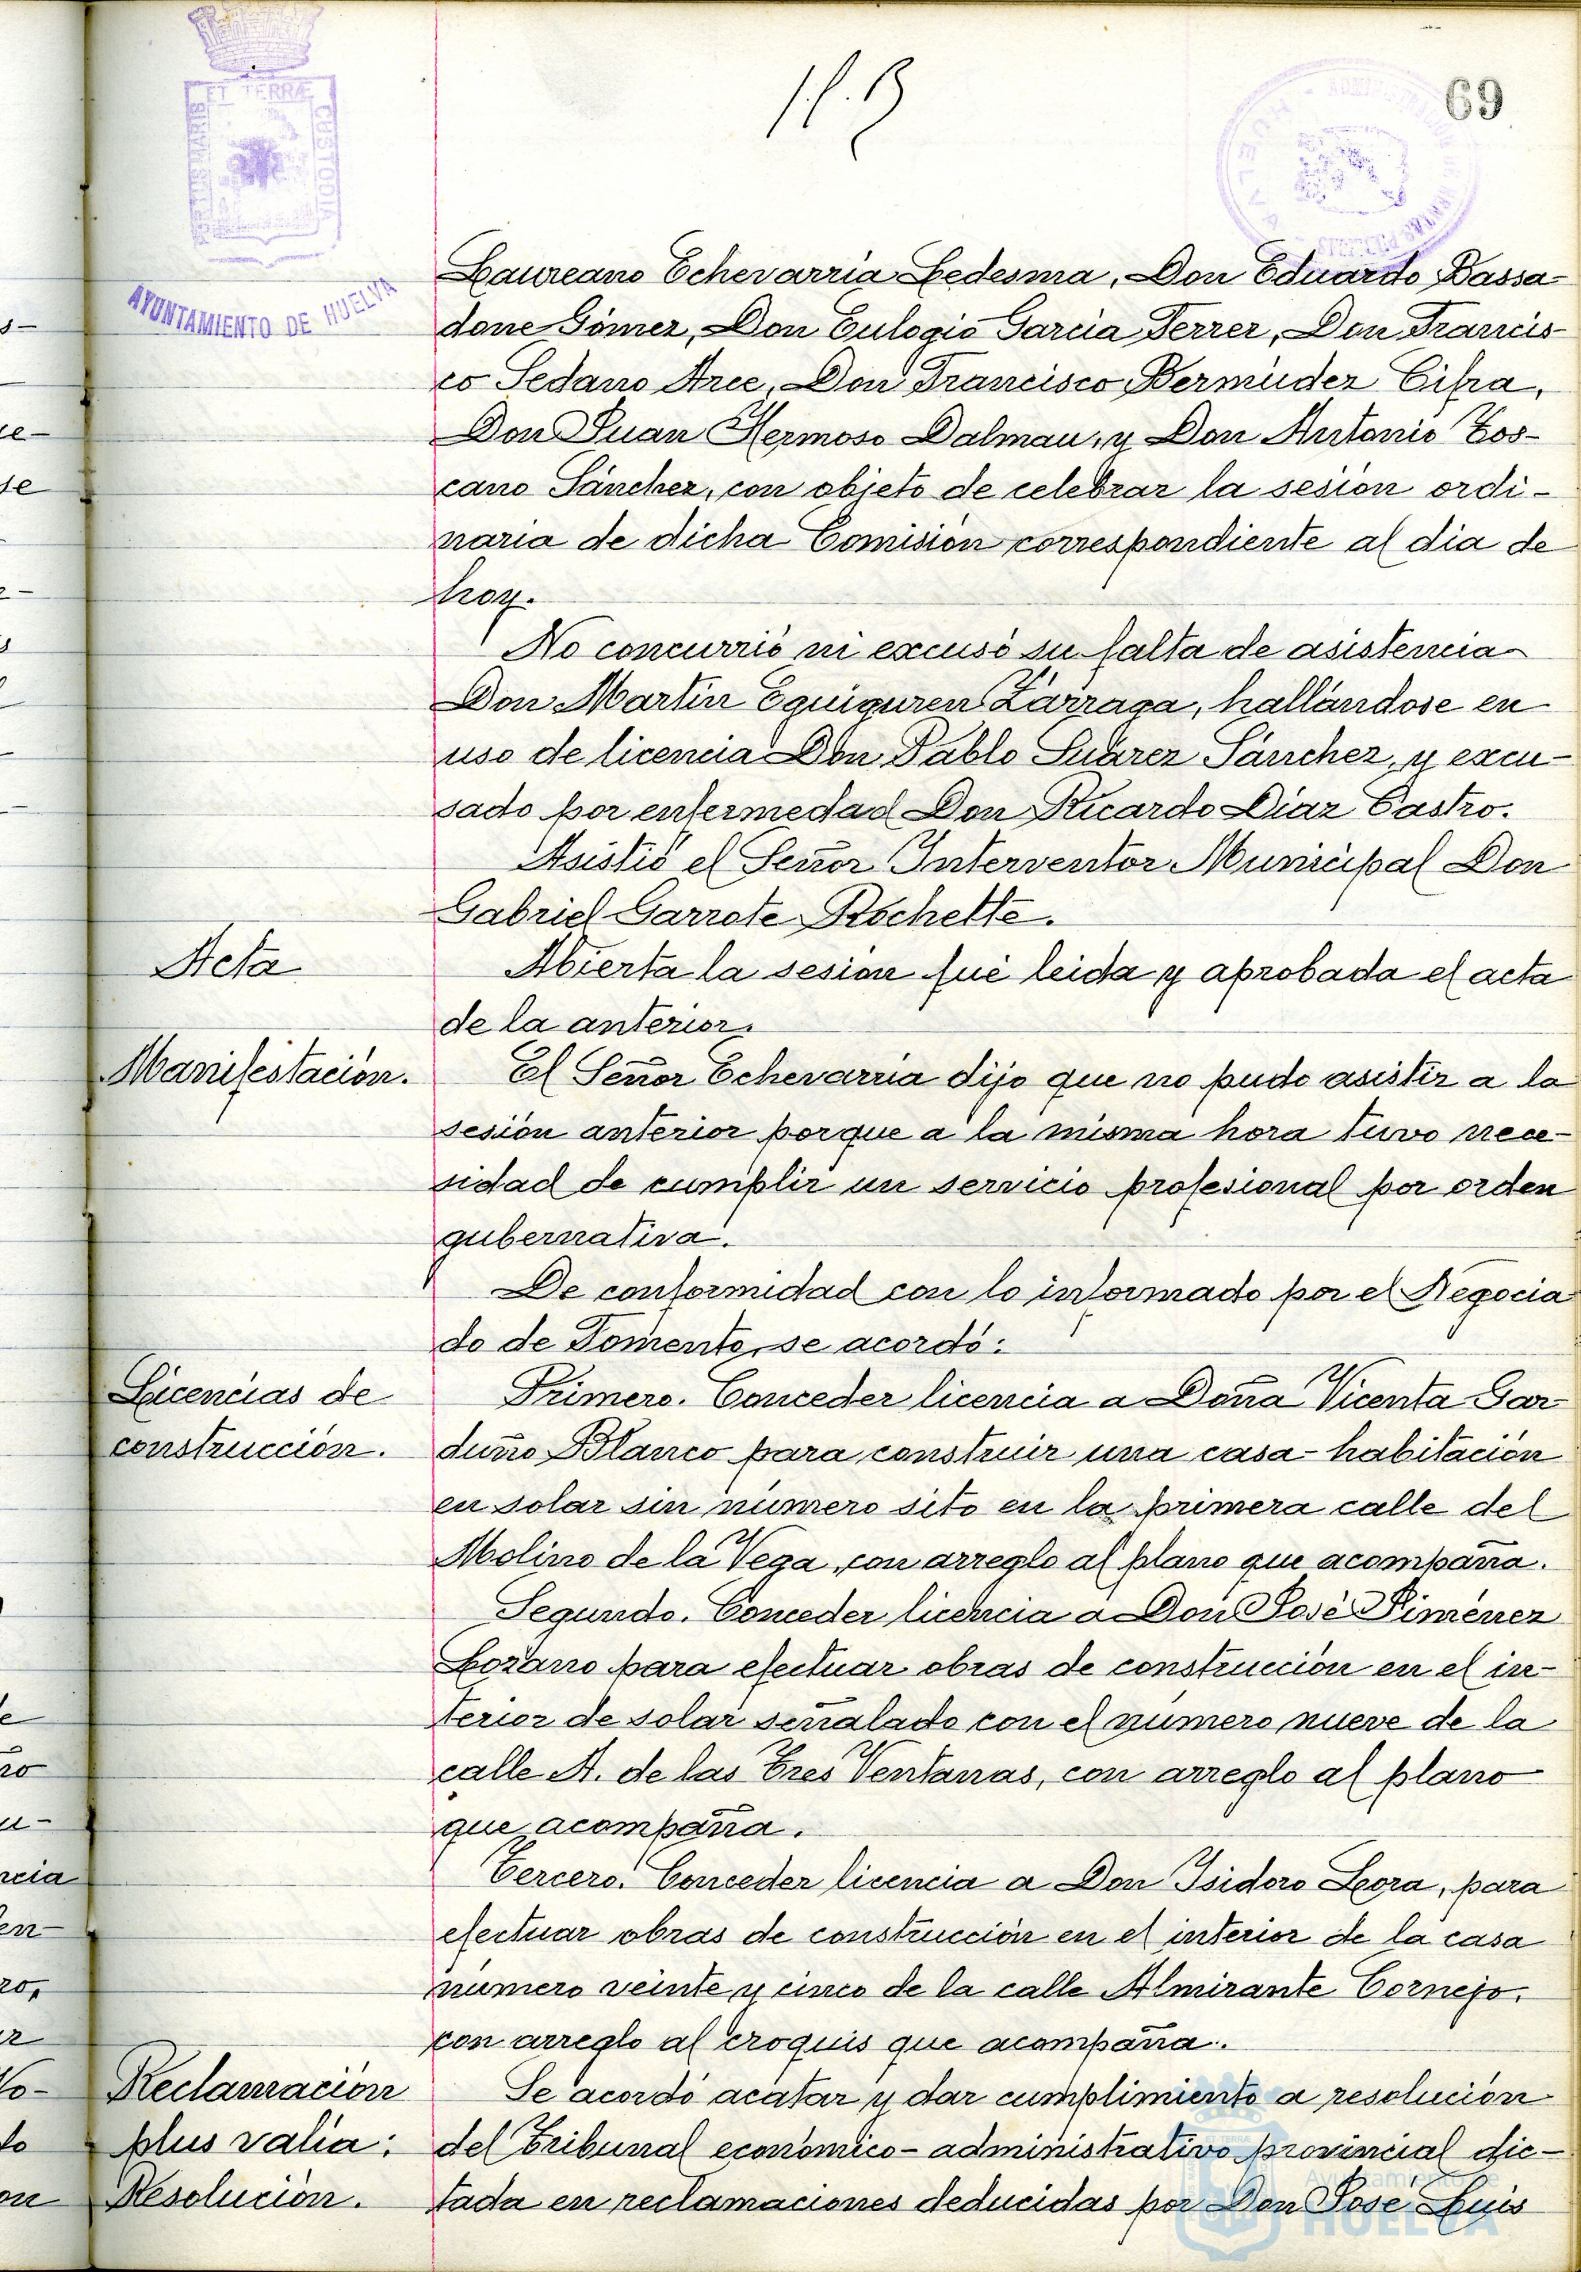 69
AYUNTAMIENTO DE HUELVA
Laureano Echevarria Ledesma, Don Eduardo Bassa-
done Gómez, Don Eulogio Garcia Ferrer, Don Francis-
co Sedano Arce, Don Francisco Bermúdez Cifra,
Don Juan Hermoso Dalmau, y Don Antonio Tos-
cano Sánchez, con objeto de celebrar la sesión ordi-
naria de dicha Comisión correspondiente al dia de
hoy.
No concurrió ni excusó su falta de asistencia
Don Martín Eguiguren Zárraga, hallándose en
uso de licencia Don Pablo Suárez Sánchez, y excu-
sado por enfermedad Don Ricardo Díaz Castro.
Asistió el Señor Interventor Municipal Don
Gabriel Garrote Rochette.
Acta
Abierta la sesión fué leida y aprobada el acta
de la anterior.
Manifestación.
El Señor Echevarria dijo que no pudo asistir a la
sesión anterior porque a la misma hora tuvo nece-
sidad de cumplir un servicio profesional por orden
gubernativa.
De conformidad con lo informado por el Negocia
do de Fomento, se acordó:
Licencias de
construcción.
Primero. Conceder licencia a Doña Vicenta Gar
duño Blanco para construir una casa-habitación
en solar sin número sito en la primera calle del
Molino de la Vega, con arreglo al plano que acompaña.
Segundo. Conceder licencia a Don José Jiménez
Lozano para efectuar obras de construcción en el in-
terior de solar señalado con el número nueve de la
calle A. de las Tres Ventanas, con arreglo al plano
que acompaña.
Tercero. Conceder licencia a Don Isidoro Lora, para
efectuar obras de construcción en el interior de la casa
número veinte y cinco de la calle Almirante Cornejo,
con arreglo al croquis que acompaña.
Reclamación
plus valía:
Resolución.
Se acordó acatar y dar cumplimiento a resolución
del Tribunal económico-administrativo provincial dic-
tada en reclamaciones deducidas por Don José Luis
Ayuntamiento de
HUELVA